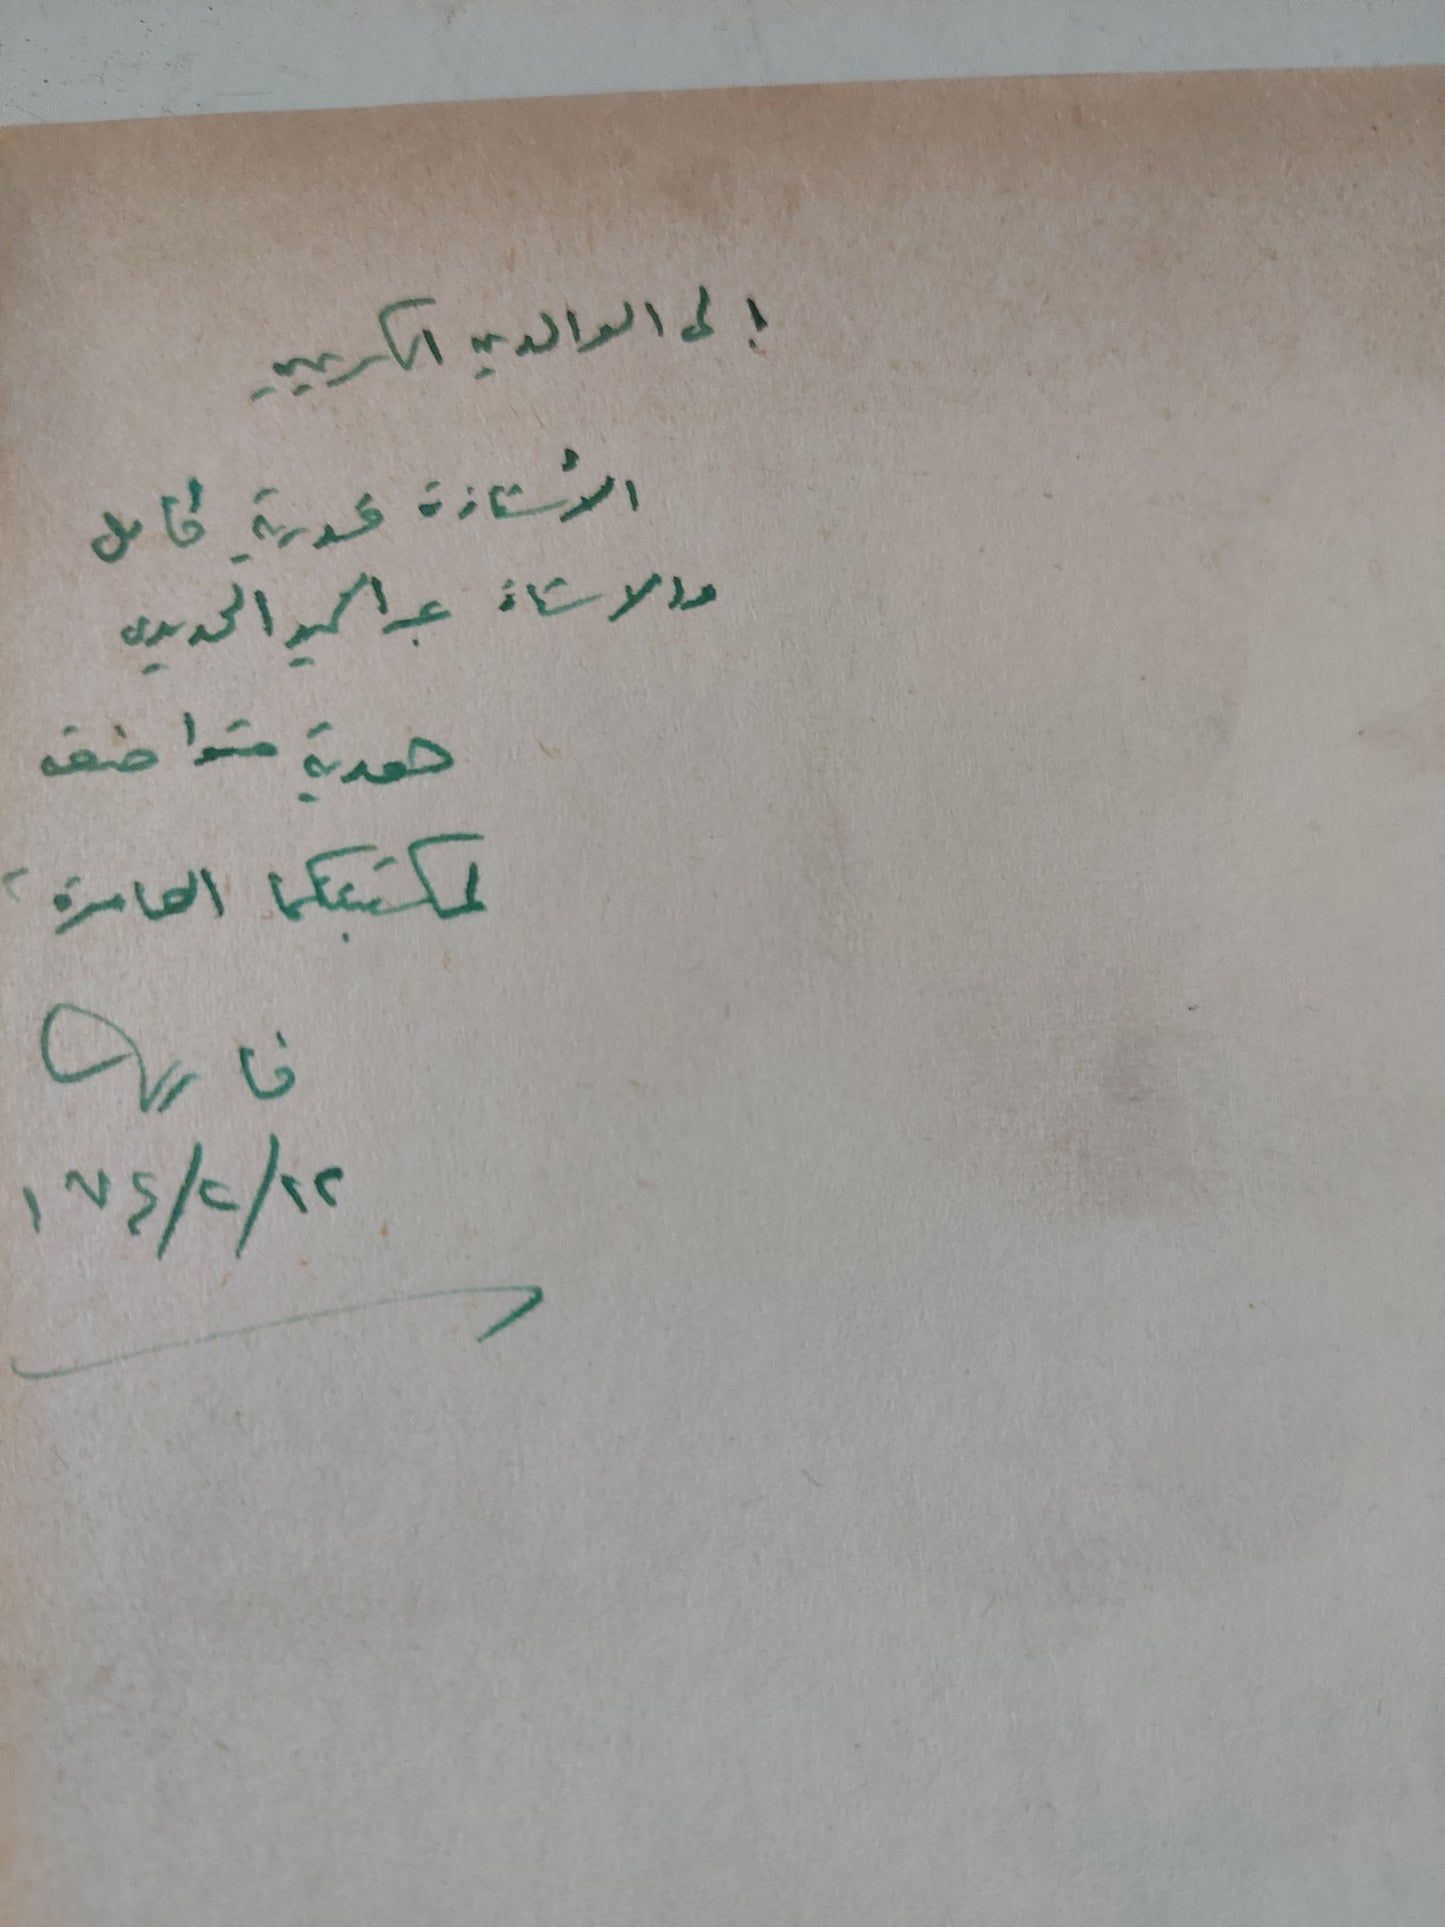 إلى الوالدين الكريمين
الأستاذة قدرية كامل
والاستاذ عبد الحميد الحديدى
هدية متواضعة
لمكتبتكما العامرة
فاروق